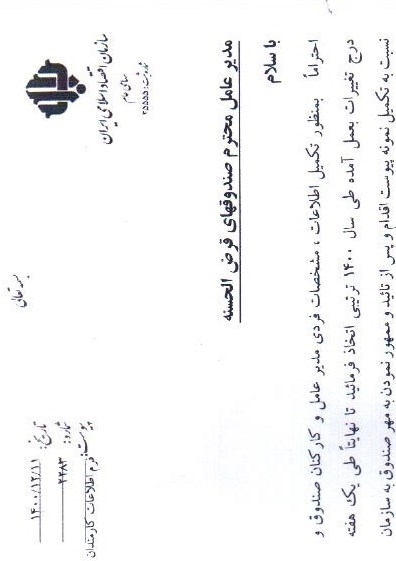 بسمه تعالی
سازمان اقتصاد اسلامی ایران
سهامی عام
شماره ثبت: ۲۵۵۵۵
تاریخ: ۱۴۰۰/۱۲/۱۱
شماره: ۲۲۸۳
پیوست: فرم اطلاعات کارمندان
مدیر عامل محترم صندوقهای قرض الحسنه
با سلام
احتراماً بمنظور تکمیل اطلاعات ، مشخصات فردی مدیر عامل و کارکنان صندوق و
درج تغییرات بعمل آمده طی سال ۱۴۰۰ ترتیبی اتخاذ فرمائید تا نهایتاً طی یک هفته
نسبت به تکمیل نمونه پیوست اقدام و پس از تائید و ممهور نمودن به مهر صندوق به سازمان